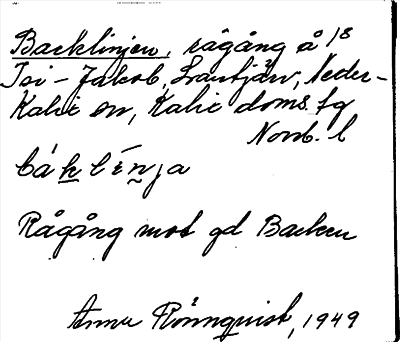 Backlinjen, rågång å 1/8
Isi - Jakob, Lautjärv, Neder-
Kalix sn, Kalix doms. fg
Norrb. l
båklinja
Rågång mot gd Backen
Anna Rönnquist, 1949